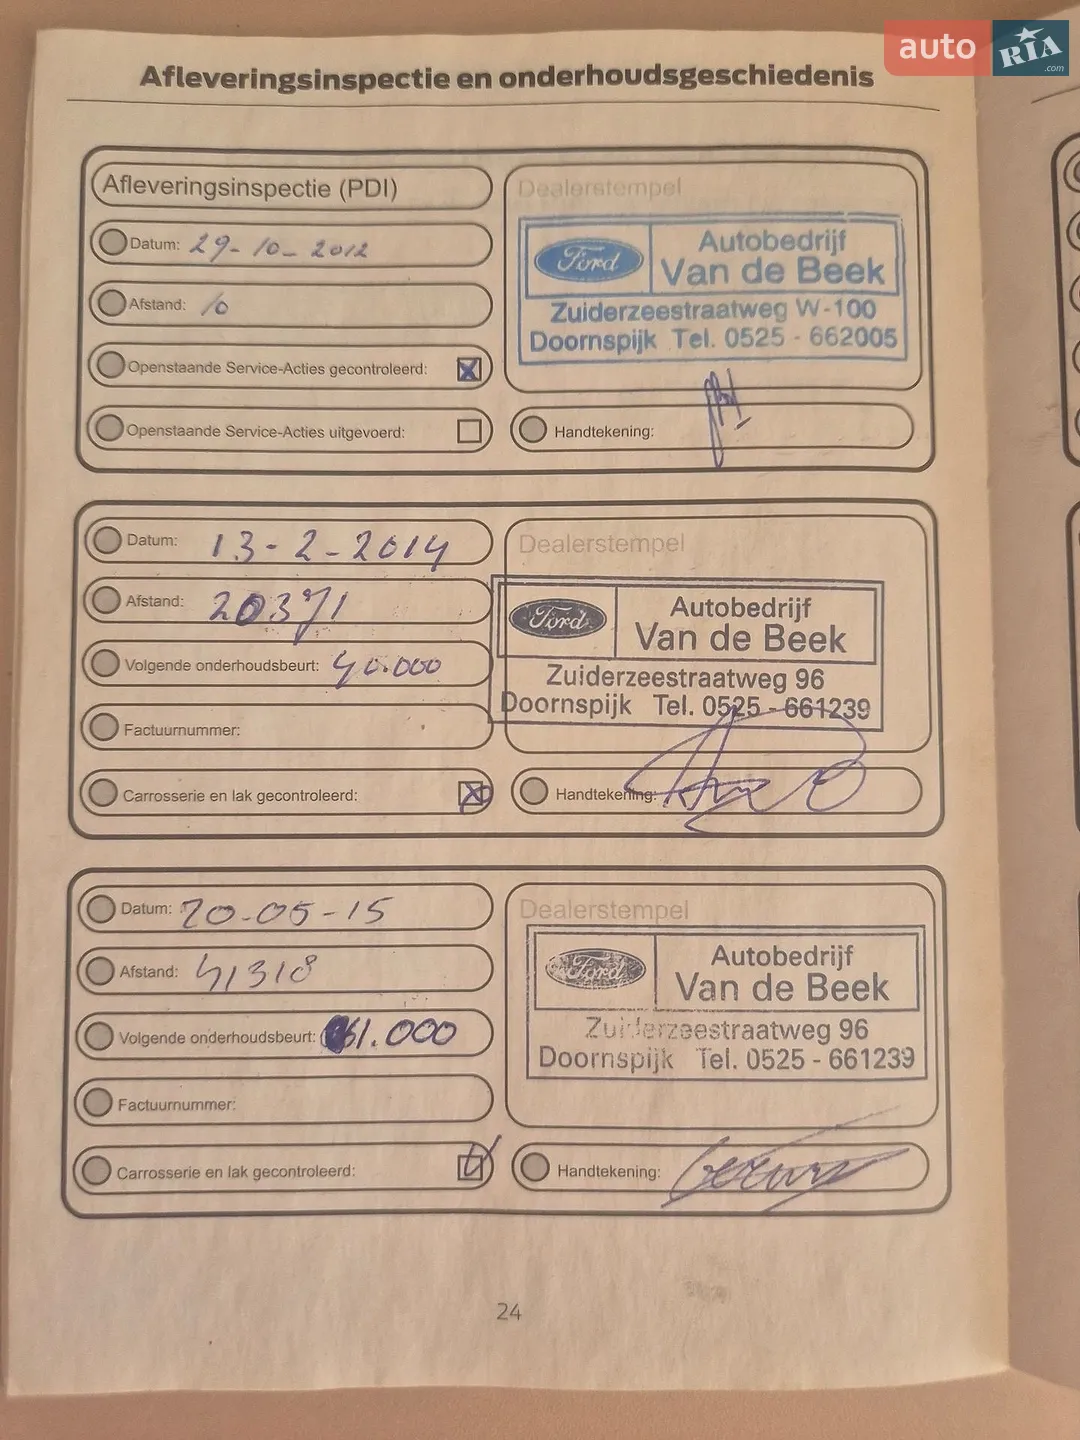 auto RIA .com
Afleveringsinspectie en onderhoudsgeschiedenis
Afleveringsinspectie (PDI)
Datum: 29-10-2012
Afstand: 10
Openstaande Service-Acties gecontroleerd:
Openstaande Service-Acties uitgevoerd:
Dealerstempel
Ford
Autobedrijf
Van de Beek
Zuiderzeestraatweg W-100
Doornspijk Tel. 0525 - 662005
Handtekening:
Datum: 13-2-2014
Afstand: 20371
Volgende onderhoudsbeurt: 40.000
Factuurnummer:
Carrosserie en lak gecontroleerd:
Dealerstempel
Ford
Autobedrijf
Van de Beek
Zuiderzeestraatweg 96
Doornspijk Tel. 0525 - 661239
Handtekening:
Datum: 20-05-15
Afstand: 41318
Volgende onderhoudsbeurt: 61.000
Factuurnummer:
Carrosserie en lak gecontroleerd:
Dealerstempel
Ford
Autobedrijf
Van de Beek
Zuiderzeestraatweg 96
Doornspijk Tel. 0525 - 661239
Handtekening:
24